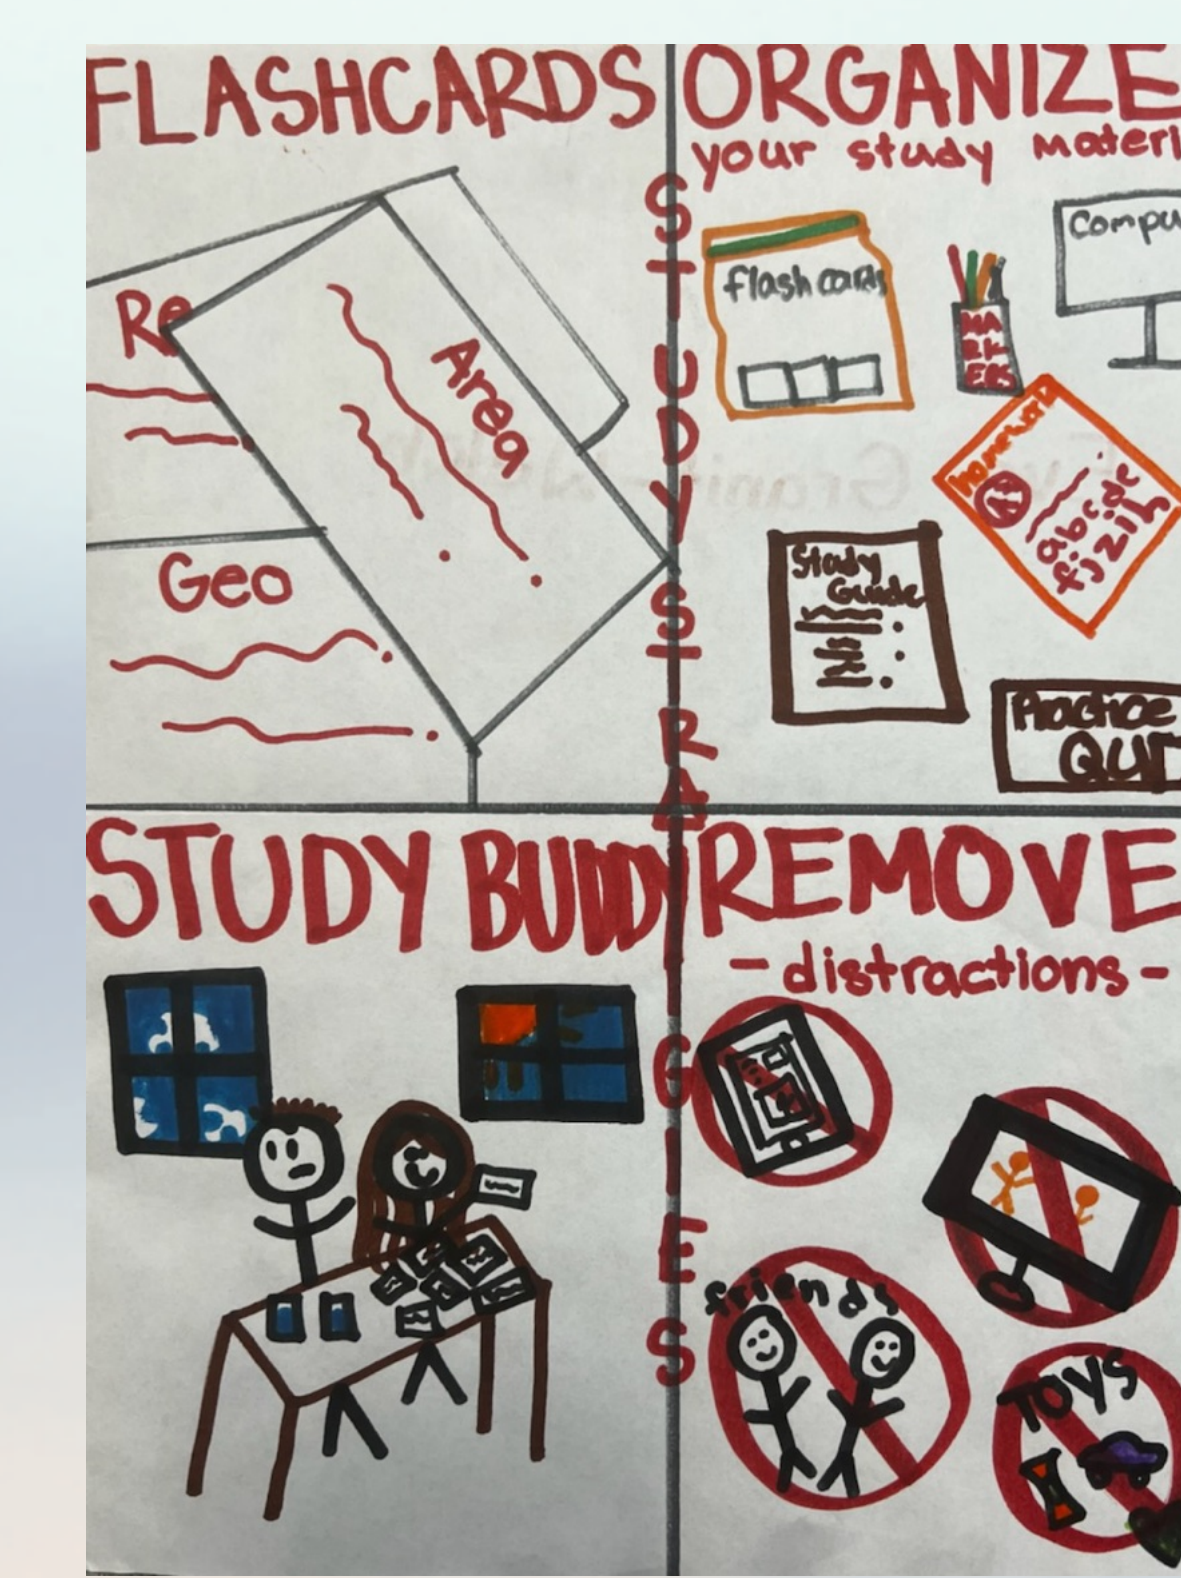 FLASHCARDS
Re
Area
Geo
ORGANIZE
your study materi
flashcards
MA
RK
ERS
Compu
homework
A+
abcde
fjzih
Study
Guide
Practice
QUI
STUDY STRATIGIES
STUDY BUDDY
REMOVE
-distractions-
friends
TOYS